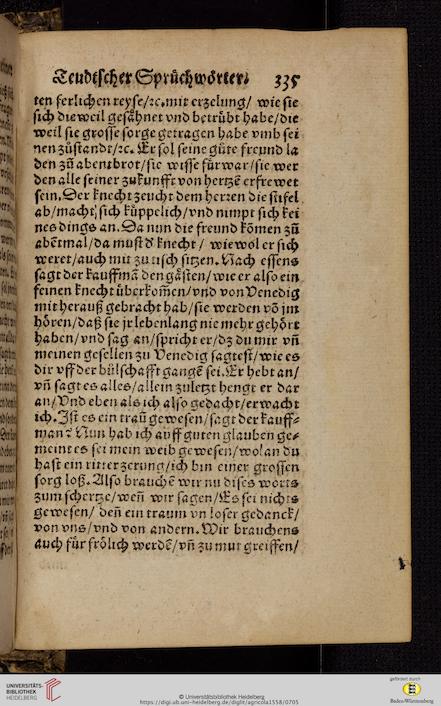 Teudtscher Sprüchwörter. 335
ten ferlichen reyse/ꝛc. mit erzelung/ wie sie
sich die weil gesähnet vnd betrübt habe/die
weil sie grosse sorge getragen habe vmb sei
nen zůstandt/ꝛc. Er sol seine gůte freund la
den zů abentbrot/sie wisse fürwar/sie wer
den alle seiner zukunfft von hertzē erfrewet
sein. Der knecht zeucht dem herren die stifel
ab/macht sich küppelich/vnd nimpt sich kei
nes dings an. Da nun die freund kōmen zů
abētmal/da must d' knecht / wie wol er sich
weret/auch mit zu tisch sitzen. Nach essens
sagt der kauffmā den gästen/wie er also ein
feinen knecht überkom̄en/vnd von Venedig
mit herauß gebracht hab/sie werden vō jm
hören/daß sie jr lebenlang nie mehr gehört
haben/vnd sag an/spricht er/dz du mir vn̄
meinen gesellen zu Venedig sagtest/wie es
dir vff der bůlschafft gangē sei. Er hebt an/
vn̄ sagt es alles/allein zuletzt hengt er dar
an/Vnd eben als ich also gedacht/erwacht
ich. Ist es ein traū gewesen/sagt der kauff-
man? Nun hab ich auff guten glauben ge-
meint es sei mein weib gewesen/wolan du
hast ein ritter zerung/ich bin einer grossen
sorg loß. Also brauchē wir nu dises worts
zum schertze/wen̄ wir sagen/Es sei nichts
gewesen/ den̄ ein traum vn loser gedanck/
von vns/vnd von andern. Wir brauchens
auch für frölich werdē/vn̄ zu mut greiffen/
UNIVERSITÄTS-
BIBLIOTHEK
HEIDELBERG
© Universitätsbibliothek Heidelberg
https://digi.ub.uni-heidelberg.de/diglit/agricola1558/0705
gefördert durch
Baden-Württemberg